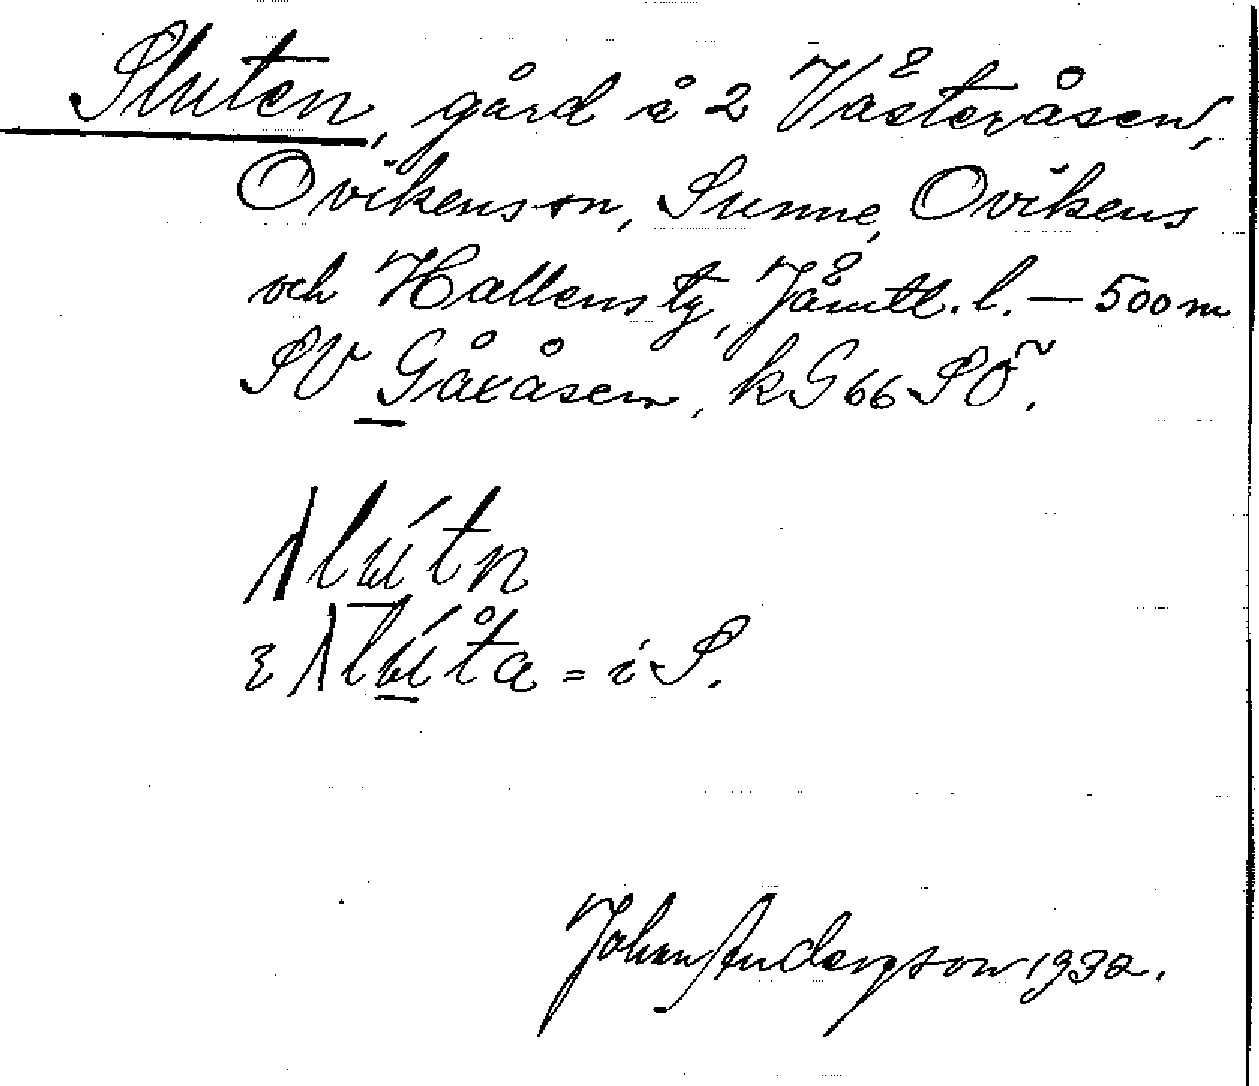 Sluten, gård i 2 Västeråsen,
Ovikens sn, Sunne, Ovikens
och Hallens tg, Jämtl. l. — 500 m
SV Gåxåsen, k G66 SÖ.
i S.
Johan Anderson 1932.